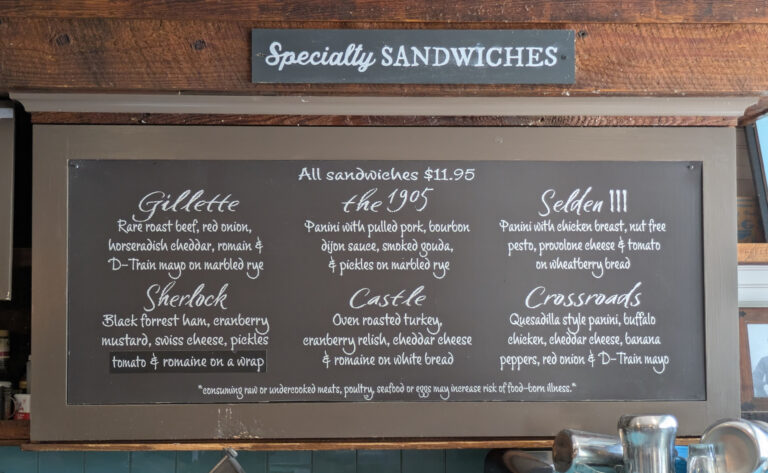 Specialty SANDWICHES
All sandwiches $11.95
Gillette
Rare roast beef, red onion,
horseradish cheddar, romain &
D-Train mayo on marbled rye
the 1905
Panini with pulled pork, bourbon
dijon sauce, smoked gouda,
& pickles on marbled rye
Selden III
Panini with chicken breast, nut free
pesto, provolone cheese & tomato
on wheatberry bread
Sherlock
Black forrest ham, cranberry
mustard, swiss cheese, pickles
tomato & romaine on a wrap
Castle
Oven roasted turkey,
cranberry relish, cheddar cheese
& romaine on white bread
Crossroads
Quesadilla style panini, buffalo
chicken, cheddar cheese, banana
peppers, red onion & D-Train mayo
"consuming raw or undercooked meats, poultry, seafood or eggs may increase risk of food-born illness."